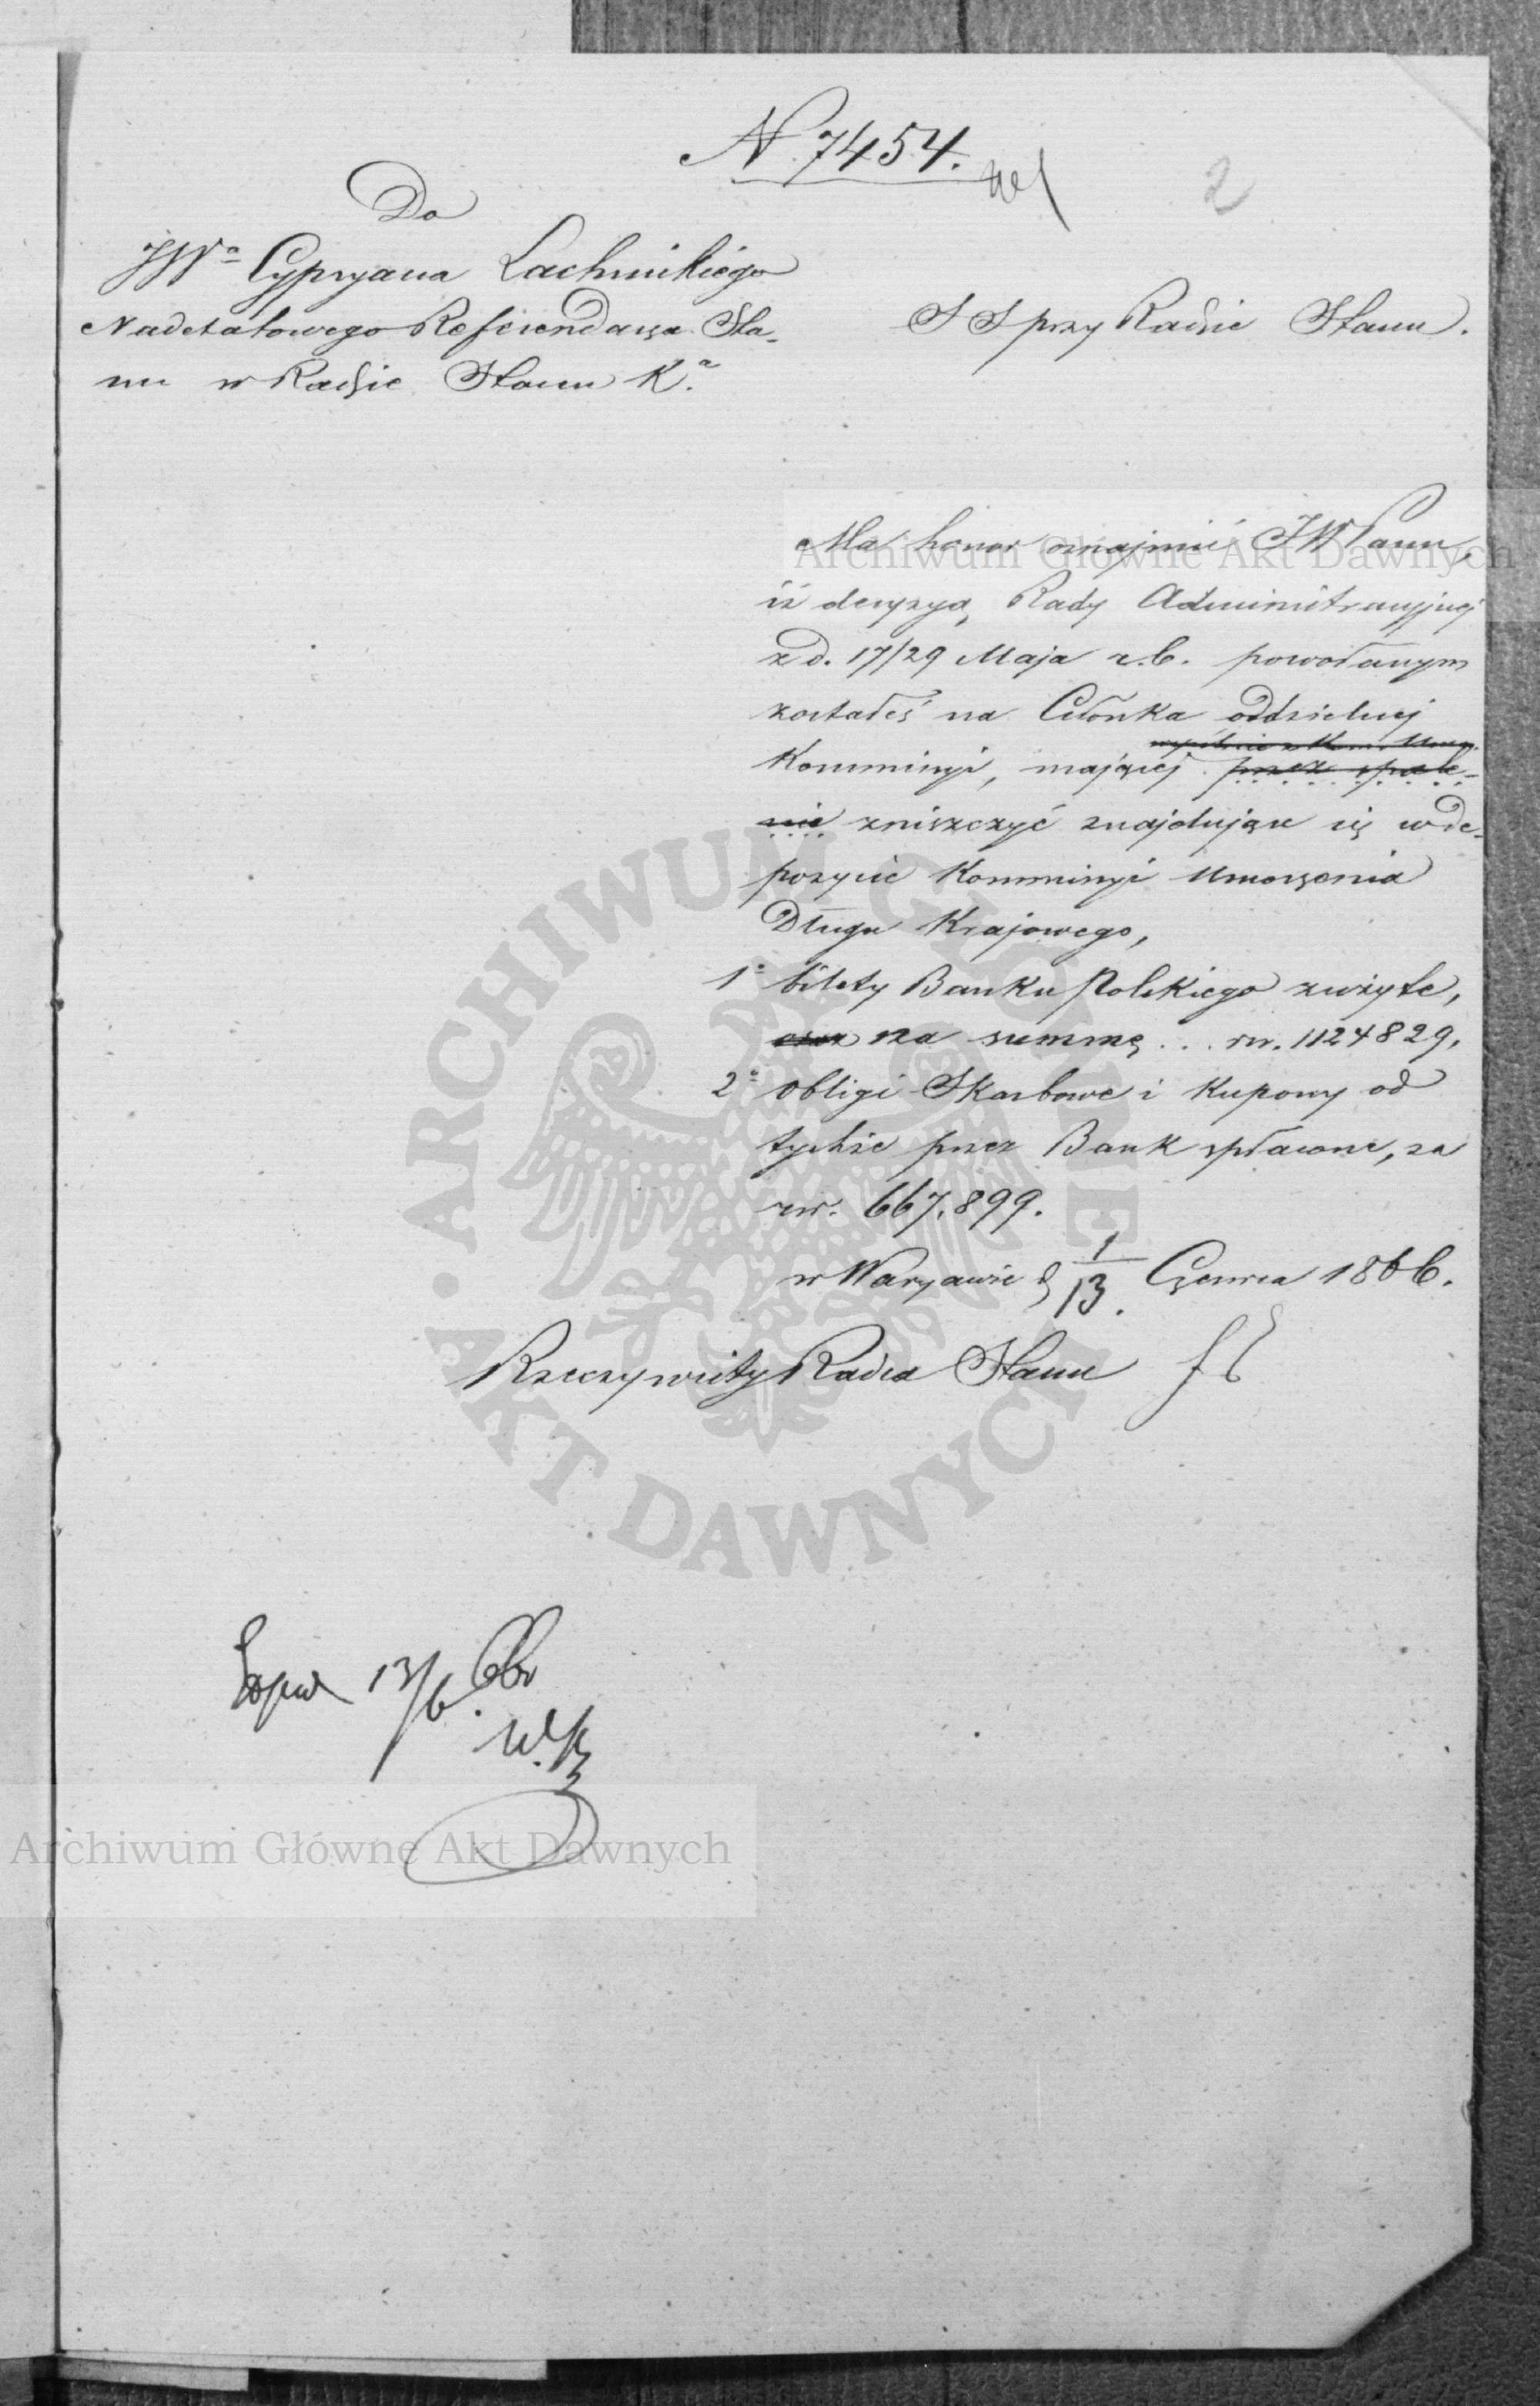 N 7454.
2
Do
JWo Cypryana Lachnickiego
Nadetatowego Referendarza Sta-
nu w Radzie Stanu Ka.
S S przy Radzie Stanu.
Ma honor oznajmić JW Panu,
iż decyzyą Rady Administracyjnej
z d. 17/29 Maja r.b. powołanym
zostałeś na Członka oddzielnej
wspólnie z Kom. Umor.
Kommissyi, mającej przez spale-
nie zniszczyć znajdujące się w de-
pozycie Kommissyi Umorzenia
Długu Krajowego,
1o bilety Banku Polskiego zużyte,
na summę . . . rsr. 1124829,
2o Obligi Skarbowe i Kupony od
tychże przez Bank spłacone, za
rsr. 667.899.
w Warszawie d 1/13. Czerwca 1866.
Rzeczywisty Radca Stanu
13/6.
Archiwum Główne Akt Dawnych
ARCHIWUM GŁÓWNE AKT DAWNYCH
Archiwum Główne Akt Dawnych